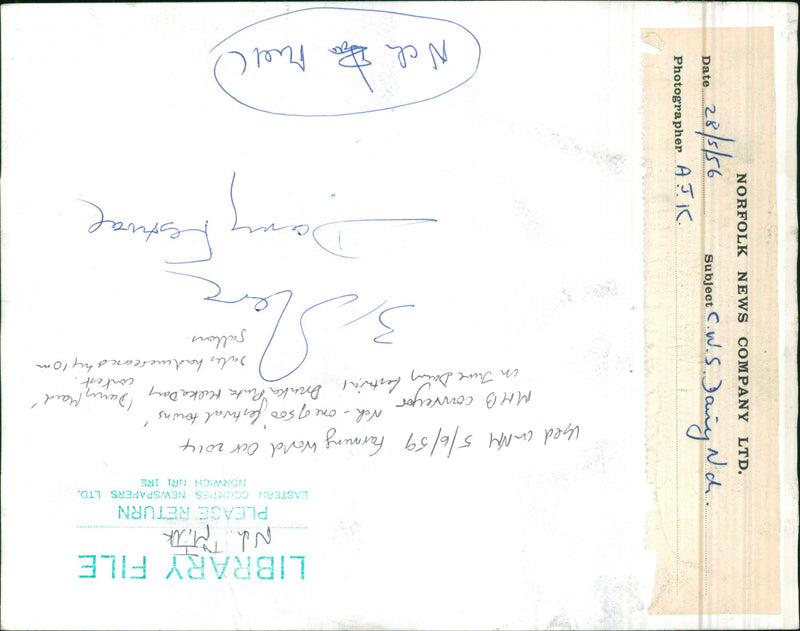 NORFOLK NEWS COMPANY LTD.
Date 28/5/56 Subject C.W.S. Dairy Nch.
Photographer A.J.K.
LIBRARY FILE
Nch Milk
PLEASE RETURN
EASTERN COUNTIES NEWSPAPERS LTD.
NORWICH NR1 1RE
Used in NM 5/6/59 Farming World Oct 2014
MMB conveyor Nch - one of 500 'festival towns'
in June Dairy festival Drinka Pinta Milka Day 'Dairy Maid'
contest.
Sales had increased by 10m
gallons
3
Dairy Festival
Nch